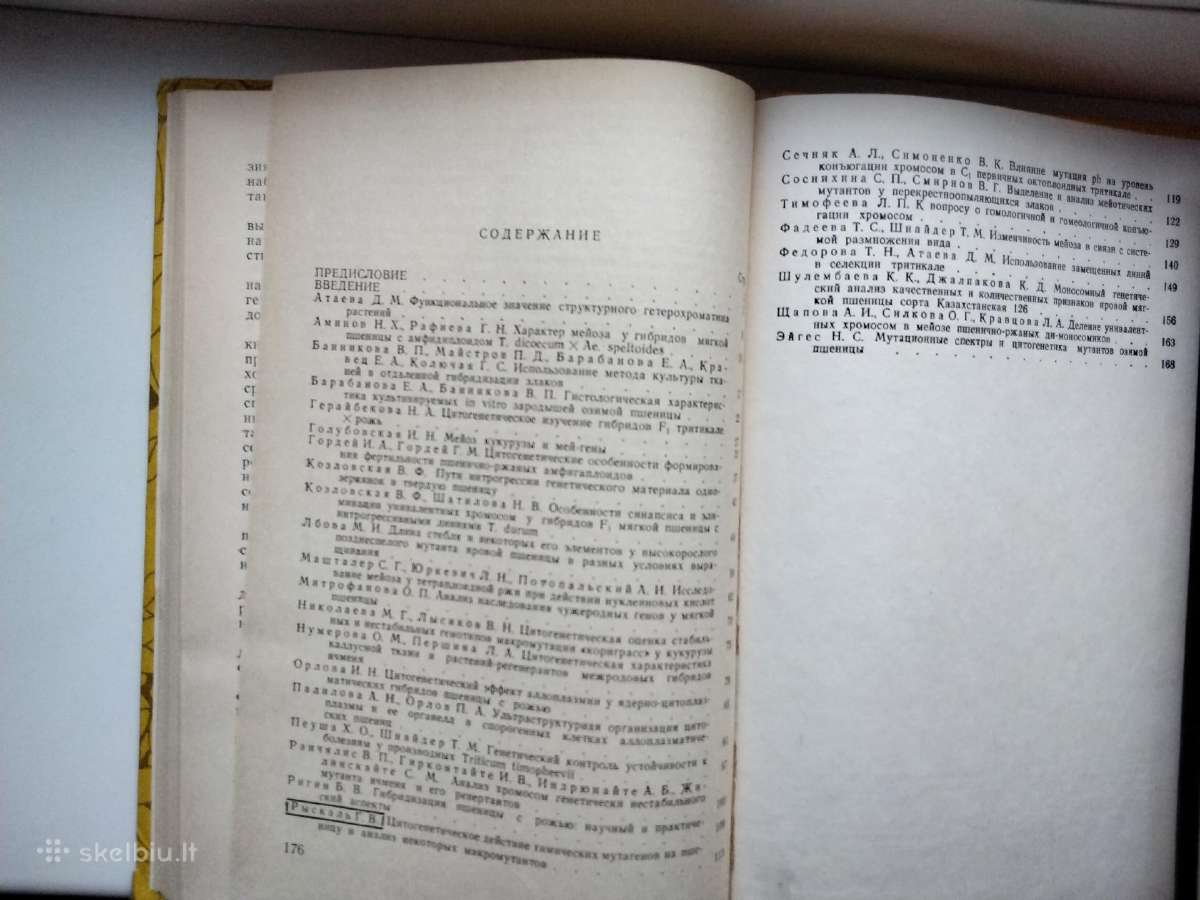 СОДЕРЖАНИЕ
ПРЕДИСЛОВИЕ
ВВЕДЕНИЕ
Атаева Д. М. Функциональное значение структурного гетерохроматина
растений
Аминов Н. Х., Рафиева Г. Н. Характер мейоза у гибридов мягкой
пшеницы с амфидиплоидом T. dicoccum × Ae. speltoides
Банникова В. П., Майстров П. Д., Барабанова Е. А., Кра-
вец Е. А., Колючая Г. С. Использование метода культуры тка-
ней в отдаленной гибридизации злаков
Барабанова Е. А., Банникова В. П. Гистологическая характерис-
тика культивируемых in vitro зародышей озимой пшеницы
Герайбекова Н. А. Цитогенетическое изучение гибридов F₁ тритикале
× рожь
Голубовская И. Н. Мейоз кукурузы и мей-гены
Гордей И. А., Гордей Г. М. Цитогенетические особенности формирова-
ния фертильности пшенично-ржаных амфигаплоидов
Козловская В. Ф. Пути интрогрессии генетического материала одно-
зернянок в твердую пшеницу
Козловская В. Ф., Шатилова Н. В. Особенности синапсиса и эли-
минации унивалентных хромосом у гибридов F₁ мягкой пшеницы с
интрогрессивными линиями T. durum
Лбова М. И. Длина стебля и некоторых его элементов у высокорослого
позднеспелого мутанта яровой пшеницы в разных условиях выра-
щивания
Машталер С. Г., Юркевич Л. Н., Потопальский А. И. Исследо-
вание мейоза у тетраплоидной ржи при действии нуклеиновых кислот
Митрофанова О. П. Анализ наследования чужеродных генов у мягкой
пшеницы
Николаева М. Г., Лысиков В. Н. Цитогенетическая оценка стабиль-
ных и нестабильных генотипов макромутации «корнграсс» у кукурузы
Нумерова О. М., Першина Л. А. Цитогенетическая характеристика
каллусной ткани и растений-регенерантов межродовых гибридов
ячменя
Орлова И. Н. Цитогенетический эффект аллоплазмии у ядерно-цитоплаз-
матических гибридов пшеницы с рожью
Падилова А. Н., Орлов П. А. Ультраструктурная организация цито-
плазмы и ее органелл в спорогенных клетках аллоплазматиче-
ских пшениц
Пеуша Х. О., Шнайдер Т. М. Генетический контроль устойчивости к
болезням у производных Triticum timopheevii
Ранчялис В. П., Гирконтайте И. В., Индрюнайте А. Б., Жи-
линскайте С. М. Анализ хромосом генетически нестабильного
мутанта ячменя и его ревертантов
Ригин Б. В. Гибридизация пшеницы с рожью: научный и практиче-
ский аспекты
Рыскаль Г. В. Цитогенетическое действие химических мутагенов на пше-
ницу и анализ некоторых макромутантов
176
Сечняк А. Л., Симоненко В. К. Влияние мутации ph на уровень
конъюгации хромосом в C₁ первичных октоплоидных тритикале 119
Соснихина С. П., Смирнов В. Г. Выделение и анализ мейотических
мутантов у перекрестноопыляющихся злаков 122
Тимофеева Л. П. К вопросу о гомологичной и гомеологичной конъю-
гации хромосом 129
Фадеева Т. С., Шнайдер Т. М. Изменчивость мейоза в связи с систе-
мой размножения вида 140
Федорова Т. Н., Атаева Д. М. Использование замещенных линий
в селекции тритикале 149
Шулембаева К. К., Джалпакова К. Д. Моносомный генетиче-
ский анализ качественных и количественных признаков яровой мяг-
кой пшеницы сорта Казахстанская 126 156
Щапова А. И., Силкова О. Г., Кравцова Л. А. Деление унивалент-
ных хромосом в мейозе пшенично-ржаных ди-моносомиков 163
Эйгес Н. С. Мутационные спектры и цитогенетика мутантов озимой
пшеницы 168
skelbiu.lt